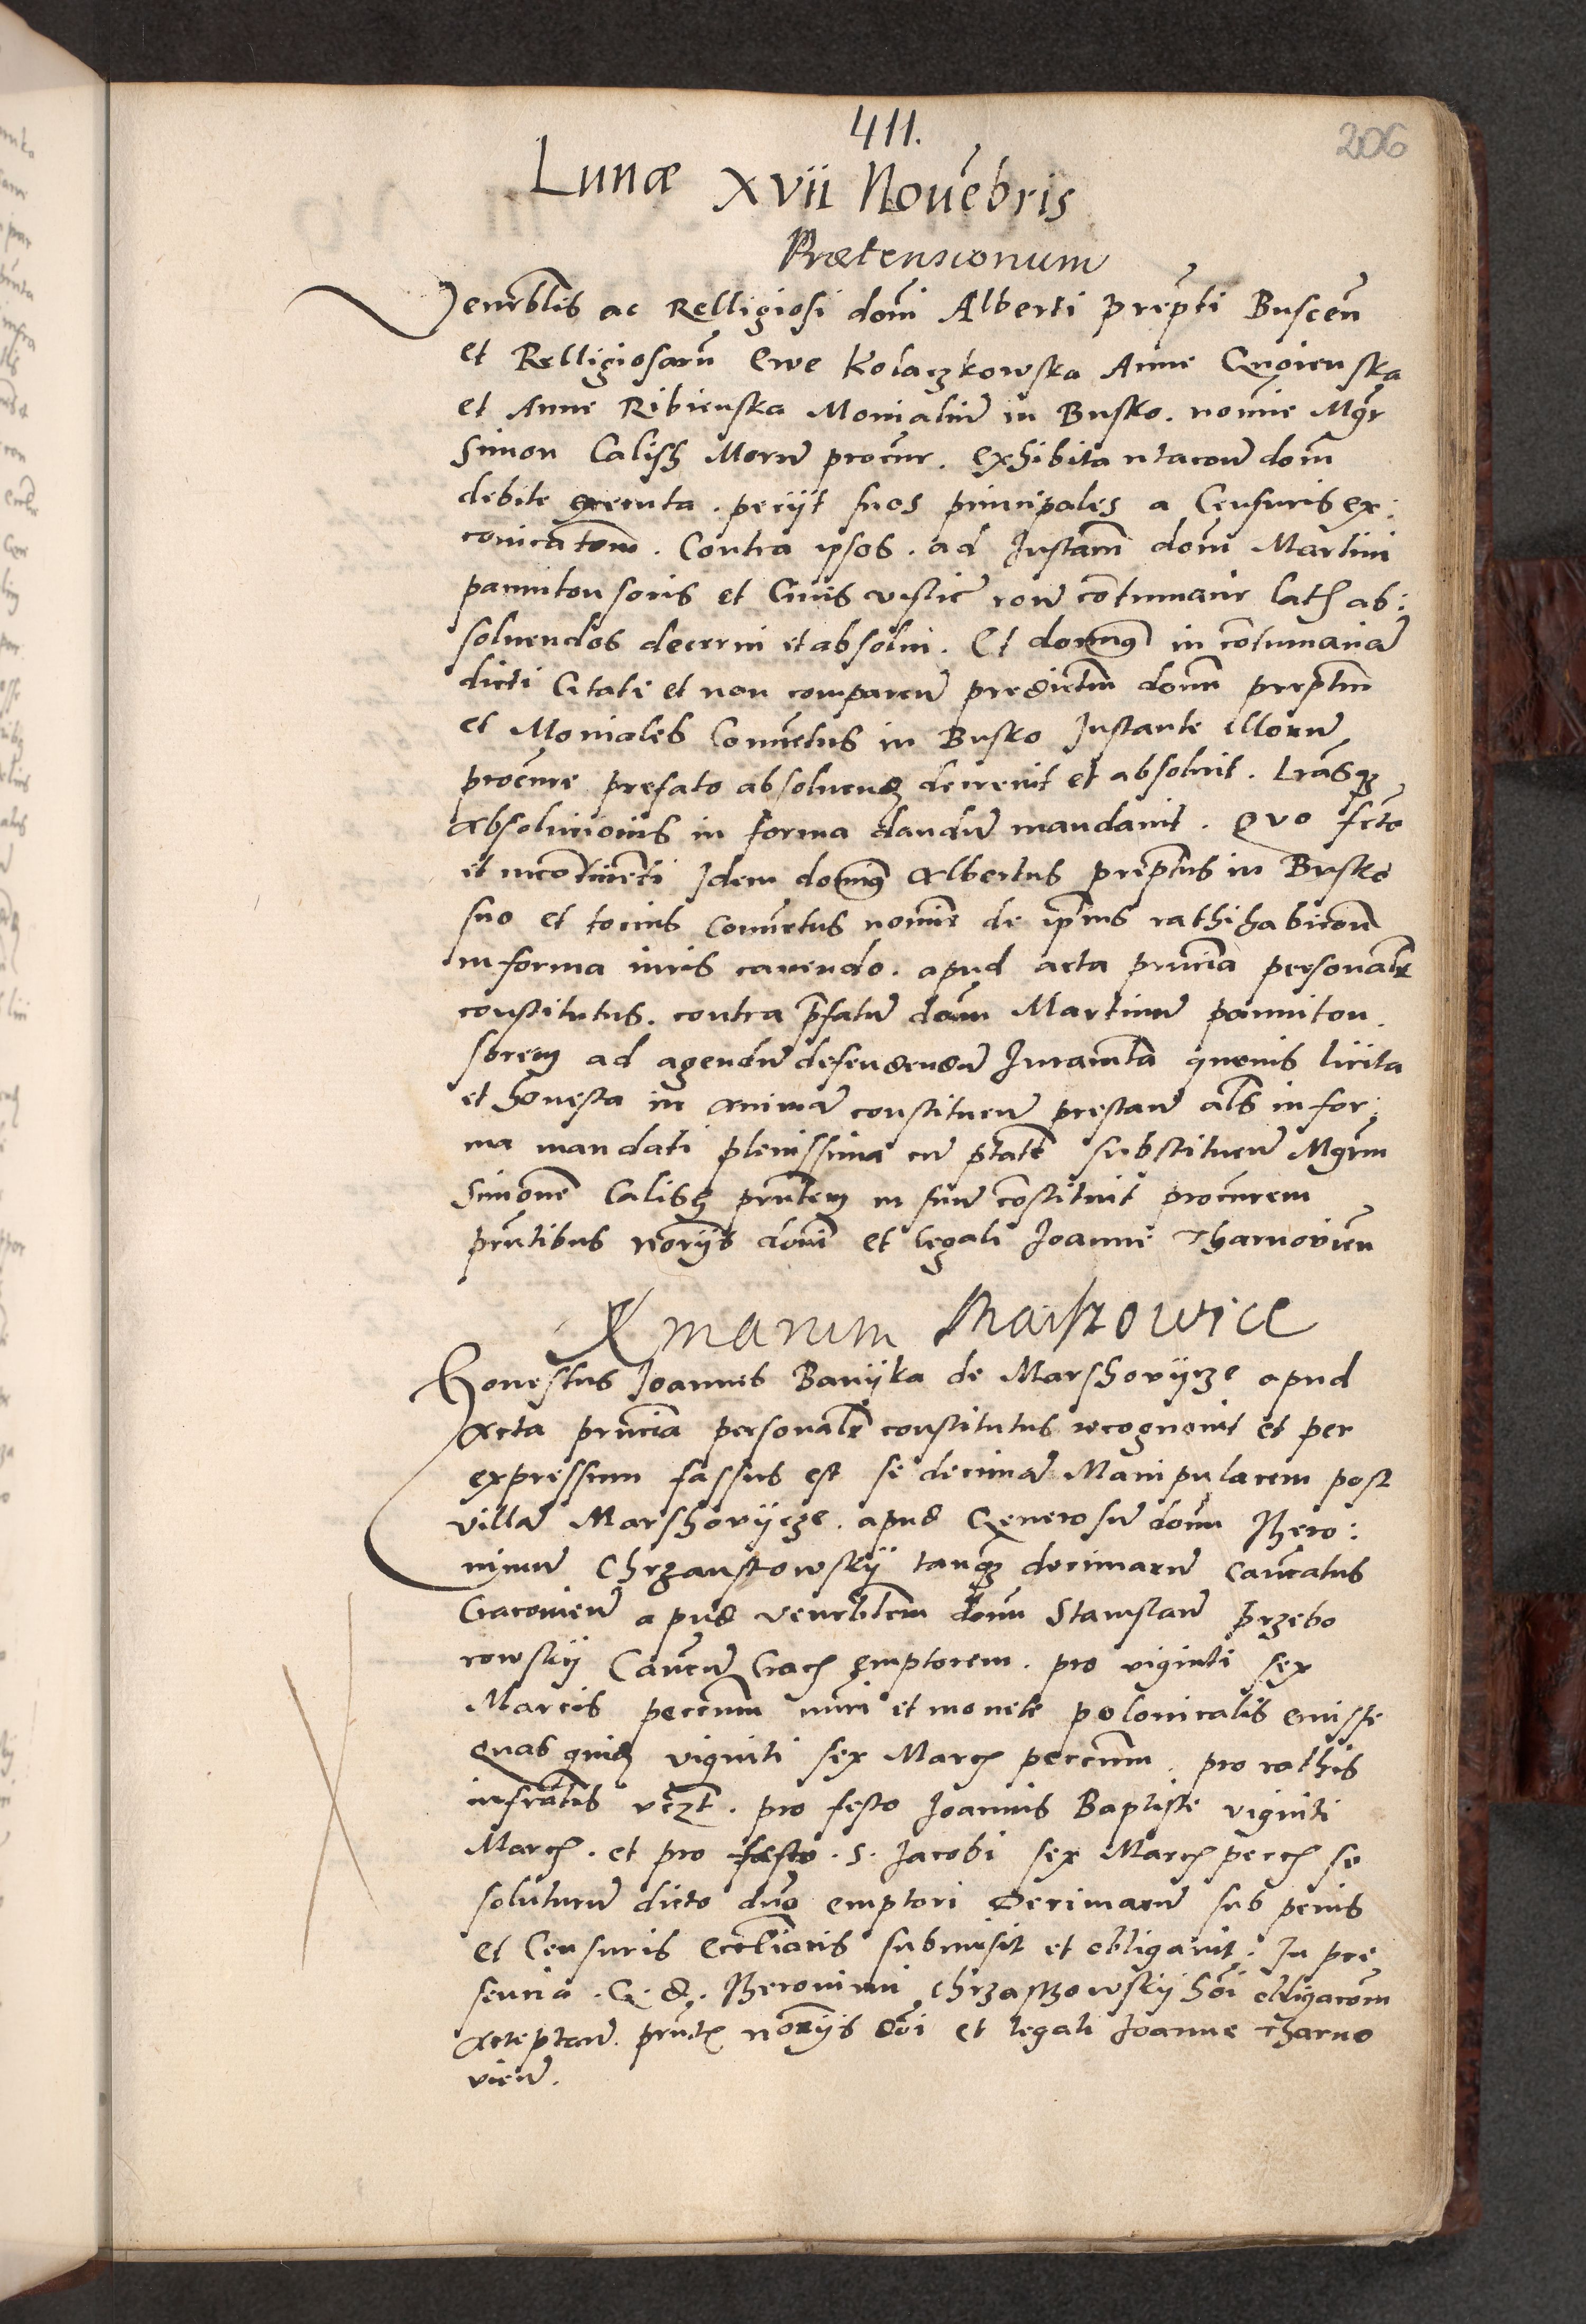 411.
206
Lunæ xvii Nouēbris
Prætensionum
Venerblis ac Relligiosi domi Alberti prepti Buscen
et Relligiosarū Ewe Kolaczkowska Anne Gnoienska
et Anne Ribienska Monialiū in Busko. nomine Mgr
Simon Calish Morū procur. exhibita citacoe dom
debite executa. petiit suos principales a Censuris ex:
coicatom. Contra ipsos. ad Instam dom Martini
pannitonsoris et Ciuis vislic coram contumacie lath ab:
soluendos decerni et absolui. Et dominus in contumaciā
dicti Citati et non comparen predictum domn preptm
et Moniales Conuetus in Busko Instante illorū
procure prefato absoluend decreuit et absoluit. Lrasq
absolucionis in forma dandū mandauit. Quo fcto
et incontinēti Idem dominus Albertus preptus in Busko
suo et tocius Conuetus nomine de ipsius rathihabicom
in forma iuris cauendo. apud acta prncia personalr
constitutus. contra pfatū domn Martinū panniton
sorem ad agendū defendendū Iuramta queuis licita
et honesta in animā constituen prestan als in for:
ma mandati plenissima cū ptate substituen Mgrm
Simonē Calish prntem in suū constituit procurem
prntibus noriis domi et legali Joanne Tharnouien
Honestus Joannes Banijka de Marshovijcze apud
Acta prncia personalr constitutus recognouit et per
expressum fassus est se decimā Manipularem post
villā Marshovijcze. apud Generosū domn Hiero:
nimū Chrzanstowskij tanq decimarū Cancatus
Cracouien apud venerblem domn Stanislaū Przebo
rowskij Canonū Crach emptorem. pro viginti sex
Marcis peccnm nuri et monete polonicalis emisse
quas quid viginti sex March peccnm. pro rathis
infrascrtis vczt. pro festo Joannis Baptiste viginti
March. et pro festo. S. Jacobi sex March pecch se
soluturū dicto dno emptori Decimarū sub penis
et Censuris eccliacis submisit et obligauit. In pre
sencia. G. d. Hieronimi Chrzastowskij hoi obligacom
acceptan. prntx noriis doi et legali Joanne Tharno
vien.